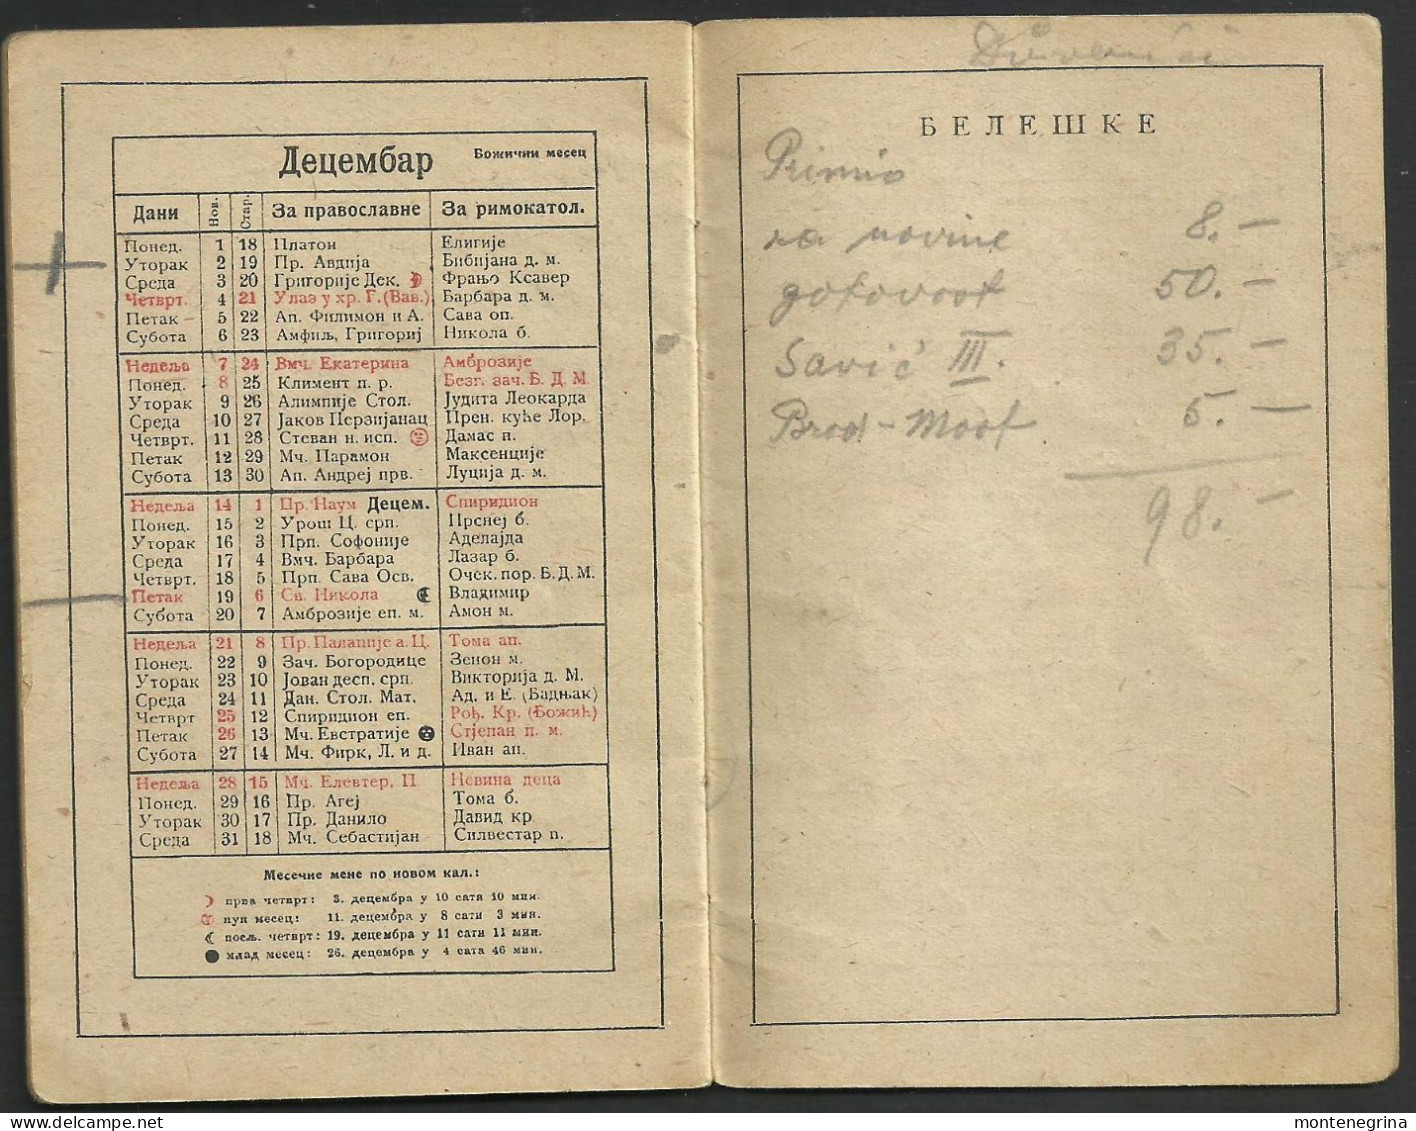 Децембар Божићни месец
Дани Нов. Стар. За православне За римокатол.
Понед. 1 18 Платон Елигије
Уторак 2 19 Пр. Авдија Бибијана д. м.
Среда 3 20 Григорије Дек. Фрањо Ксавер
Четврт. 4 21 Улаз у хр. Г. (Вав.) Барбара д. м.
Петак 5 22 Ап. Филимон и А. Сава оп.
Субота 6 23 Амфиљ, Григориј Никола б.
Недеља 7 24 Вмч. Екатерина Амброзије
Понед. 8 25 Климент п. р. Безг. зач. Б. Д. М.
Уторак 9 26 Алимпије Стол. Јудита Леокарда
Среда 10 27 Јаков Перзијанац Прен. куће Лор.
Четврт. 11 28 Стеван н. исп. Дамас п.
Петак 12 29 Мч. Парамон Максенције
Субота 13 30 Ап. Андреј прв. Луција д. м.
Недеља 14 1 Пр. Наум Децем. Спиридион
Понед. 15 2 Урош Ц. срп. Ирнеј б.
Уторак 16 3 Прп. Софоније Аделајда
Среда 17 4 Вмч. Барбара Лазар б.
Четврт. 18 5 Прп. Сава Осв. Очек. пор. Б. Д. М.
Петак 19 6 Св. Никола Владимир
Субота 20 7 Амброзије еп. м. Амон м.
Недеља 21 8 Пр. Палапије а. Ц. Тома ап.
Понед. 22 9 Зач. Богородице Зенон м.
Уторак 23 10 Јован десп. срп. Викторија д. М.
Среда 24 11 Дан. Стол. Мат. Ад. и Е. (Бадњак)
Четврт 25 12 Спиридион еп. Рођ. Кр. (Божић)
Петак 26 13 Мч. Евстратије Стјепан п. м.
Субота 27 14 Мч. Фирк, Л. и д. Иван ап.
Недеља 28 15 Мч. Елевтер, П Невина деца
Понед. 29 16 Пр. Агеј Тома б.
Уторак 30 17 Пр. Данило Давид кр.
Среда 31 18 Мч. Себастијан Силвестар п.
Месечне мене по новом кал.:
прва четврт: 3. децембра у 10 сати 10 мин.
пун месец: 11. децембра у 8 сати 3 мин.
посљ. четврт: 19. децембра у 11 сати 11 мин.
млад месец: 26. децембра у 4 сата 46 мин.
БЕЛЕШКЕ
Primio
za novine 8.—
gotovost 50.—
Savić III. 35.—
Brod-Most 5.—
98.—
montenegrina